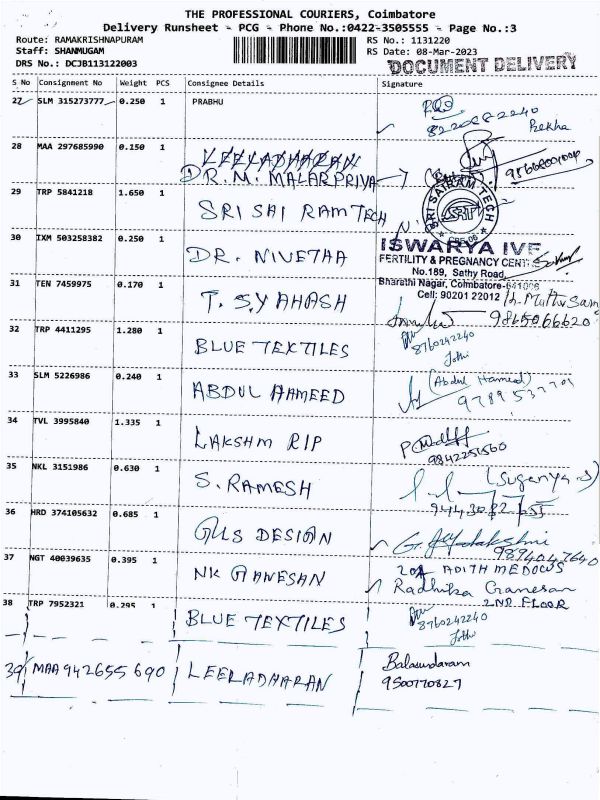 THE PROFESSIONAL COURIERS, Coimbatore
Delivery Runsheet - PCG - Phone No.:0422-3505555 - Page No.:3
Route: RAMAKRISHNAPURAM RS No.: 1131220
Staff: SHANMUGAM RS Date: 08-Mar-2023
DRS No.: DCJB113122003 DOCUMENT DELIVERY
S No Consignment No Weight PCS Consignee Details Signature
27 SLM 315273777 0.250 1 PRABHU
8220882240
Rekha
28 MAA 297685990 0.150 1 LEELADHARAN
DR. M. MALARPRIYA
29 TRP 5841218 1.650 1 SRI SAI RAM TECH
SRI SAIRAM TECH
SRT
30 IXM 503258382 0.250 1 DR. NIVETHA
ISWARYA IVF
FERTILITY & PREGNANCY CENTRE
No.189, Sathy Road,
Bharathi Nagar, Coimbatore-641006
Cell: 90201 22012
31 TEN 7459975 0.170 1 T. SYAHASH
9865066620
32 TRP 4411295 1.280 1 BLUE TEXTILES
8760242240
Jothi
33 SLM 5226986 0.240 1 ABDUL HAMEED
(Abdul Hameed)
34 TVL 3995840 1.335 1 LAKSHM RIP
9842251560
35 NKL 3151986 0.630 1 S. RAMESH
(Suganya S)
36 HRD 374105632 0.685 1 GUS DESIGN
9894047640
37 NGT 40039635 0.395 1 NK GANESAN
201 ADITH MEDOWS
Radhika Ganesan
2ND FLOOR
38 TRP 7952321 0.295 1 BLUE TEXTILES
8760242240
Jothi
39 MAA 942655690 LEELADHARAN
Balasundaram
9500770827